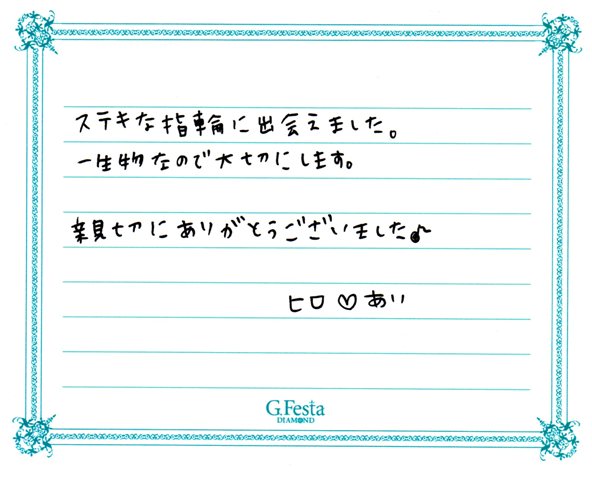 ステキな指輪に出会えました。
一生物なので大切にします。
親切にありがとうございました♪
ヒロ♡あい
G.Festa
DIAMOND